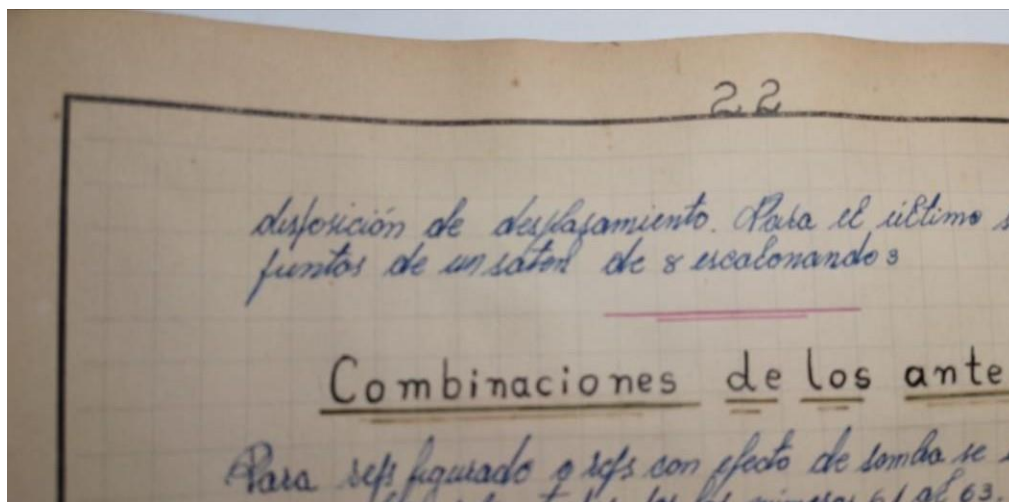 22
disposición de desplazamiento. Para el último s
puntos de un satén de 8 escalonando 3
Combinaciones de los ante
Para reps figurado o reps con efecto de sombra se
los números 61 al 63.